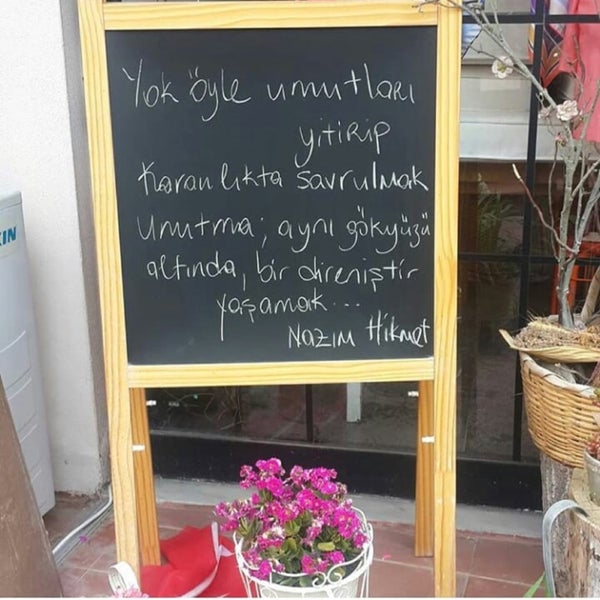 Yok öyle umutları
yitirip
Karanlıkta savrulmak
Unutma; aynı gökyüzü
altında, bir direniştir
yaşamak...
Nazım Hikmet